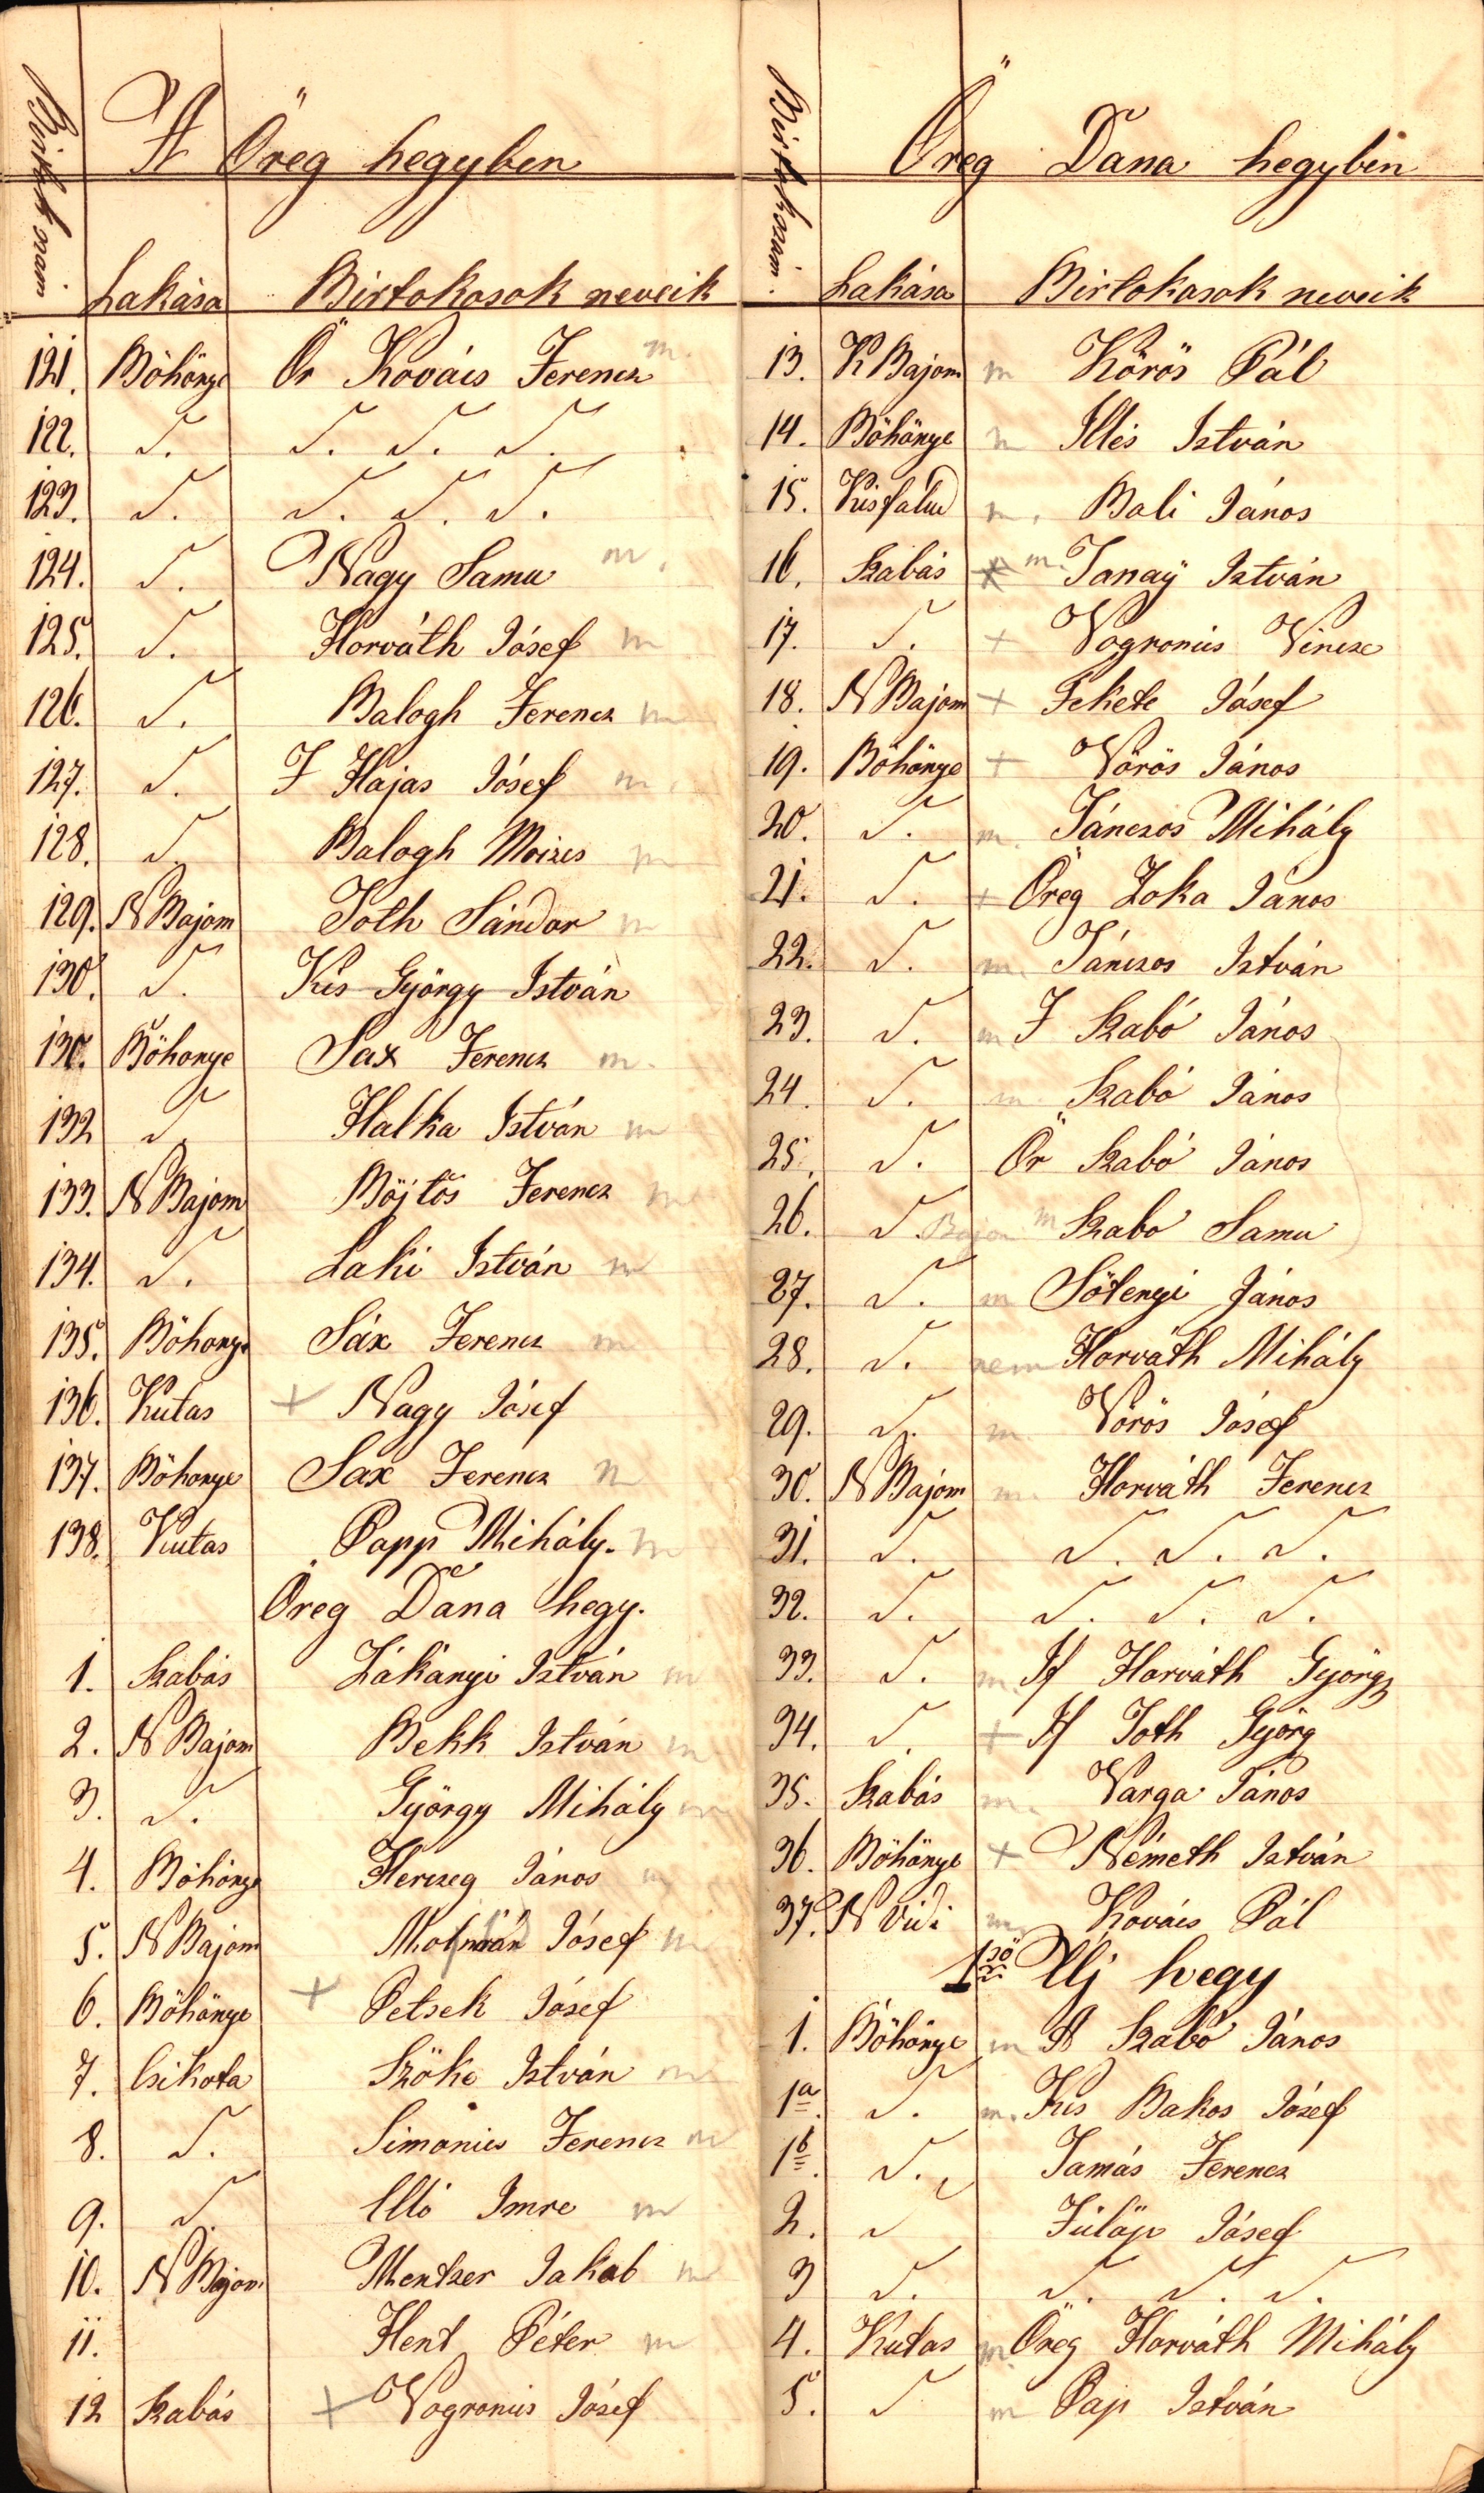 A Öreg hegyben
Birtok szám
Lakása Birtokosok neveik
121. Böhönye Ör Kovács Ferencz m.
122. S. S. S. S.
123. S. S. S. S.
124. S. Nagy Samu m.
125. S. Horváth Jósef m
126. S. Balogh Ferencz m
127. S. I Hajas Jósef m.
128. S. Balogh Moizes m
129. N Bajom Toth Sándor m
130. S. Kis György István
130. Böhonye Sax Ferencz m.
132 S. Halka István m
133. N Bajom Böjtös Ferencz m
134. S. Laki István m
135. Böhonye Sáx Ferencz m
136. Kutas + Nagy Jósef
137. Böhonye Sax Ferencz m
138. Kutas Papp Mihály. m
Öreg Dana hegy.
1. Szabás Zákányi István m
2. N Bajom Bekk István m
3. S. György Mihály m
4. Böhönye Herczeg János m
5. N Bajom Jósef m
6. Böhönye + Petsek Jósef
7. Csikota Szöke István m
8. S. Simonics Ferencz m
9. S. Illó Imre m
10. N Bajom Mentzer Jakab m
11. Hent Péter m
12 Szabás + Vogronics Jósef
Öreg Dana hegyben
Birtok szám.
Lakása Birtokosok neveik
13. K Bajom m Körös Pál
14. Böhönye m Illés István
15. Kisfalud m. Bali János
16. Szabás m. Tanaÿ István
17. S. + Vogronics Vincze
18. N Bajom + Fekete Jósef
19. Böhönye + Vörös János
20. S. m. Jánczos Mihály
21. S. + Öreg Zoka János
22. S. m. Jánczos István
23. S. m. I Szabó János
24. S. m. Szabó János
25. S. Ör Szabó János
26. S. Bajom m Szabo Samu
27. S. m Sötenyi János
28. S. nem Horváth Mihály
29. S. m Vörös Jósef
30. N Bajom m. Horváth Ferencz
31. S. S. S. S.
32. S. S. S. S.
33. S. m. If Horváth György
34. S. + If Toth Györg
35. Szabás m. Varga János
36. Böhönye + Németh István
37. N Vidi m Kovács Pál
1ső Uj hegy
1. Böhönye m A Szabó János
1a. S. m. Kis Bakos Józef
1b. S. Tamás Ferencz
2. S Fülöp Jósef
3 S. S. S. S.
4. Kutas m. Öreg Horváth Mihály
5. S m Pap István